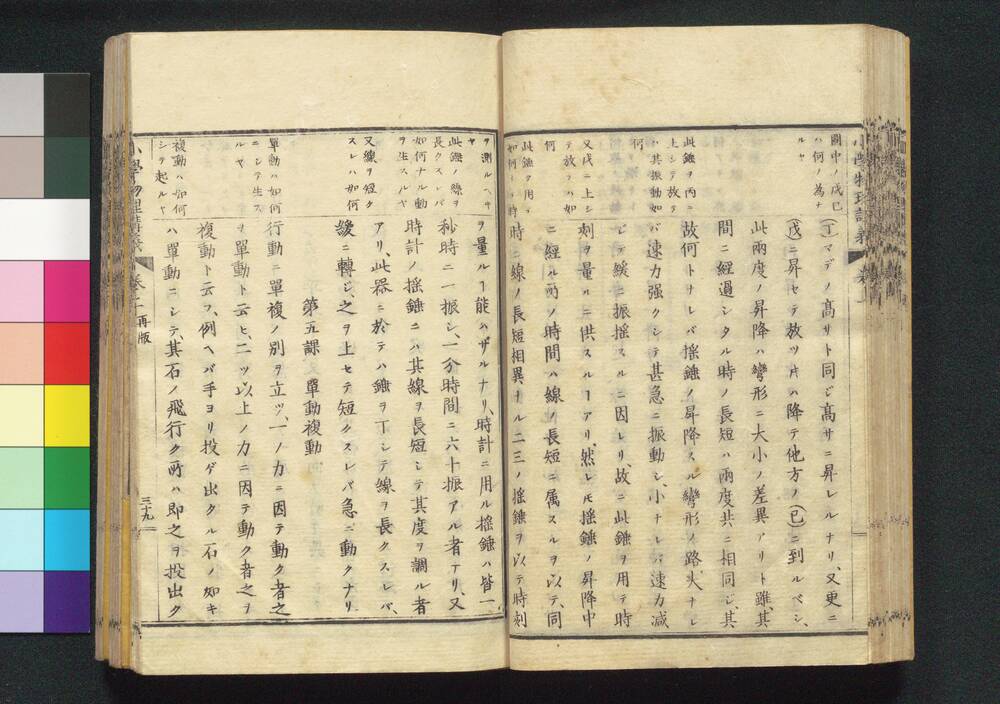 圖中ノ戊己
ハ何ノ為ナ
ルヤ
此錘ヲ丙ニ
上シテ放テ
バ其振動如
何
又戊ニ上シ
テ放テハ如
何
此錘ヲ用ヰ
(丁)マデノ髙サト同ジ髙サニ昇レルナリ、又更ニ
(戊)ニ昇セテ放ツ片ハ降テ他方ノ(己)ニ到ルベシ、
此兩度ノ昇降ハ彎形ニ大小ノ差異アリト雖、其
間ニ経過シタル時ノ長短ハ兩度共ニ相同ジ、其
故何トナレバ揺錘ノ昇降スル彎形ノ路、大ナレ
バ速力强クシテ甚急ニ振動シ、小ナレバ速力減
ジテ緩ニ振揺スルニ因レリ、故ニ此錘ヲ用テ時
刻ヲ量ルニ供スルヿアリ、然レ𪜈揺錘ノ昇降中
ニ經ル所ノ時間ハ線ノ長短ニ属スルヲ以テ、同
時ニ線ノ長短相異ナル二三ノ揺錘ヲ以テ時刻
ヲ測ルヘキ
ヤ
此錘ノ線ヲ
長クスレバ
如何ナル動
ヲ生スルヤ
又線ヲ短ク
スレハ如何
單動ハ如何
ニシテ生ス
ルヤ
複動ハ如何
シテ起ルヤ
ヲ量ルヿ能ハザルナリ、時計ニ用ル揺錘ハ皆一
秒時ニ一振シ、一分時間ニ六十振アル者アリ、又
時計ノ揺錘ニハ其線ヲ長短シテ其度ヲ調ル者
アリ、此器ニ於テハ錘ヲ下シテ線ヲ長クスレバ、
緩ニ轉ジ、之ヲ上セテ短クスレバ急ニ動クナリ
第五課　單動複動
行動ニ單複ノ別ヲ立ツ、一ノ力ニ因テ動ク者之
ヲ單動ト云ヒ、二ツ以上ノ力ニ因テ動ク者之ヲ
複動ト云フ、例ヘバ手ヨリ投ゲ出クル石ノ如キ
ハ單動ニシテ、其石ノ飛行ク所ハ即之ヲ投出ク
再版
三十九